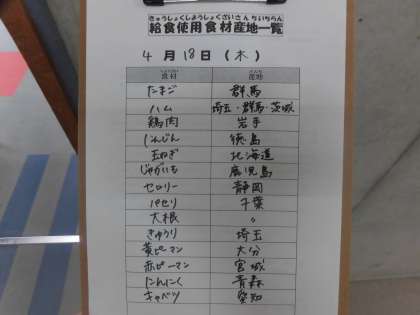 きゅうしょくしようしょくざいさんちいちらん
給食使用食材産地一覧
4月18日(木)
食材 産地
たまご 群馬
ハム 埼玉・群馬・茨城
鶏肉 岩手
にんじん 徳島
玉ねぎ 北海道
じゃがいも 鹿児島
セロリー 静岡
パセリ 千葉
大根 〃
きゅうり 埼玉
黄ピーマン 大分
赤ピーマン 宮城
にんにく 青森
キャベツ 愛知